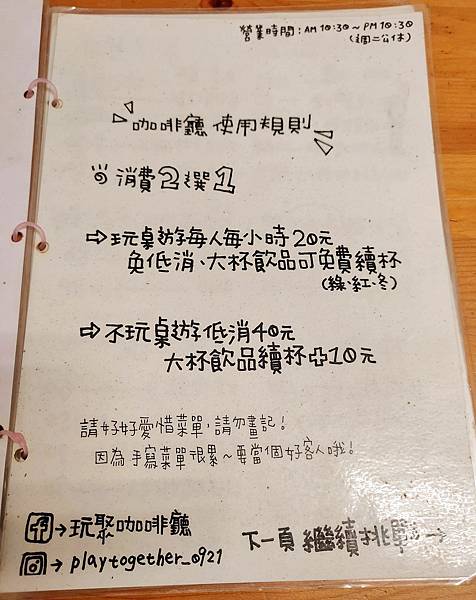 營業時間：AM 10:30～PM 10:30
(週二公休)
咖啡廳 使用規則
消費2選1
⇨玩桌遊每人每小時20元
免低消、大杯飲品可免費續杯
(綠、紅、冬)
⇨不玩桌遊低消40元
大杯飲品續杯+10元
請好好愛惜菜單，請勿畫記！
因為手寫菜單很累～要當個好客人哦！
→玩聚咖啡廳
→playtogether_0921
下一頁 繼續挑戰→